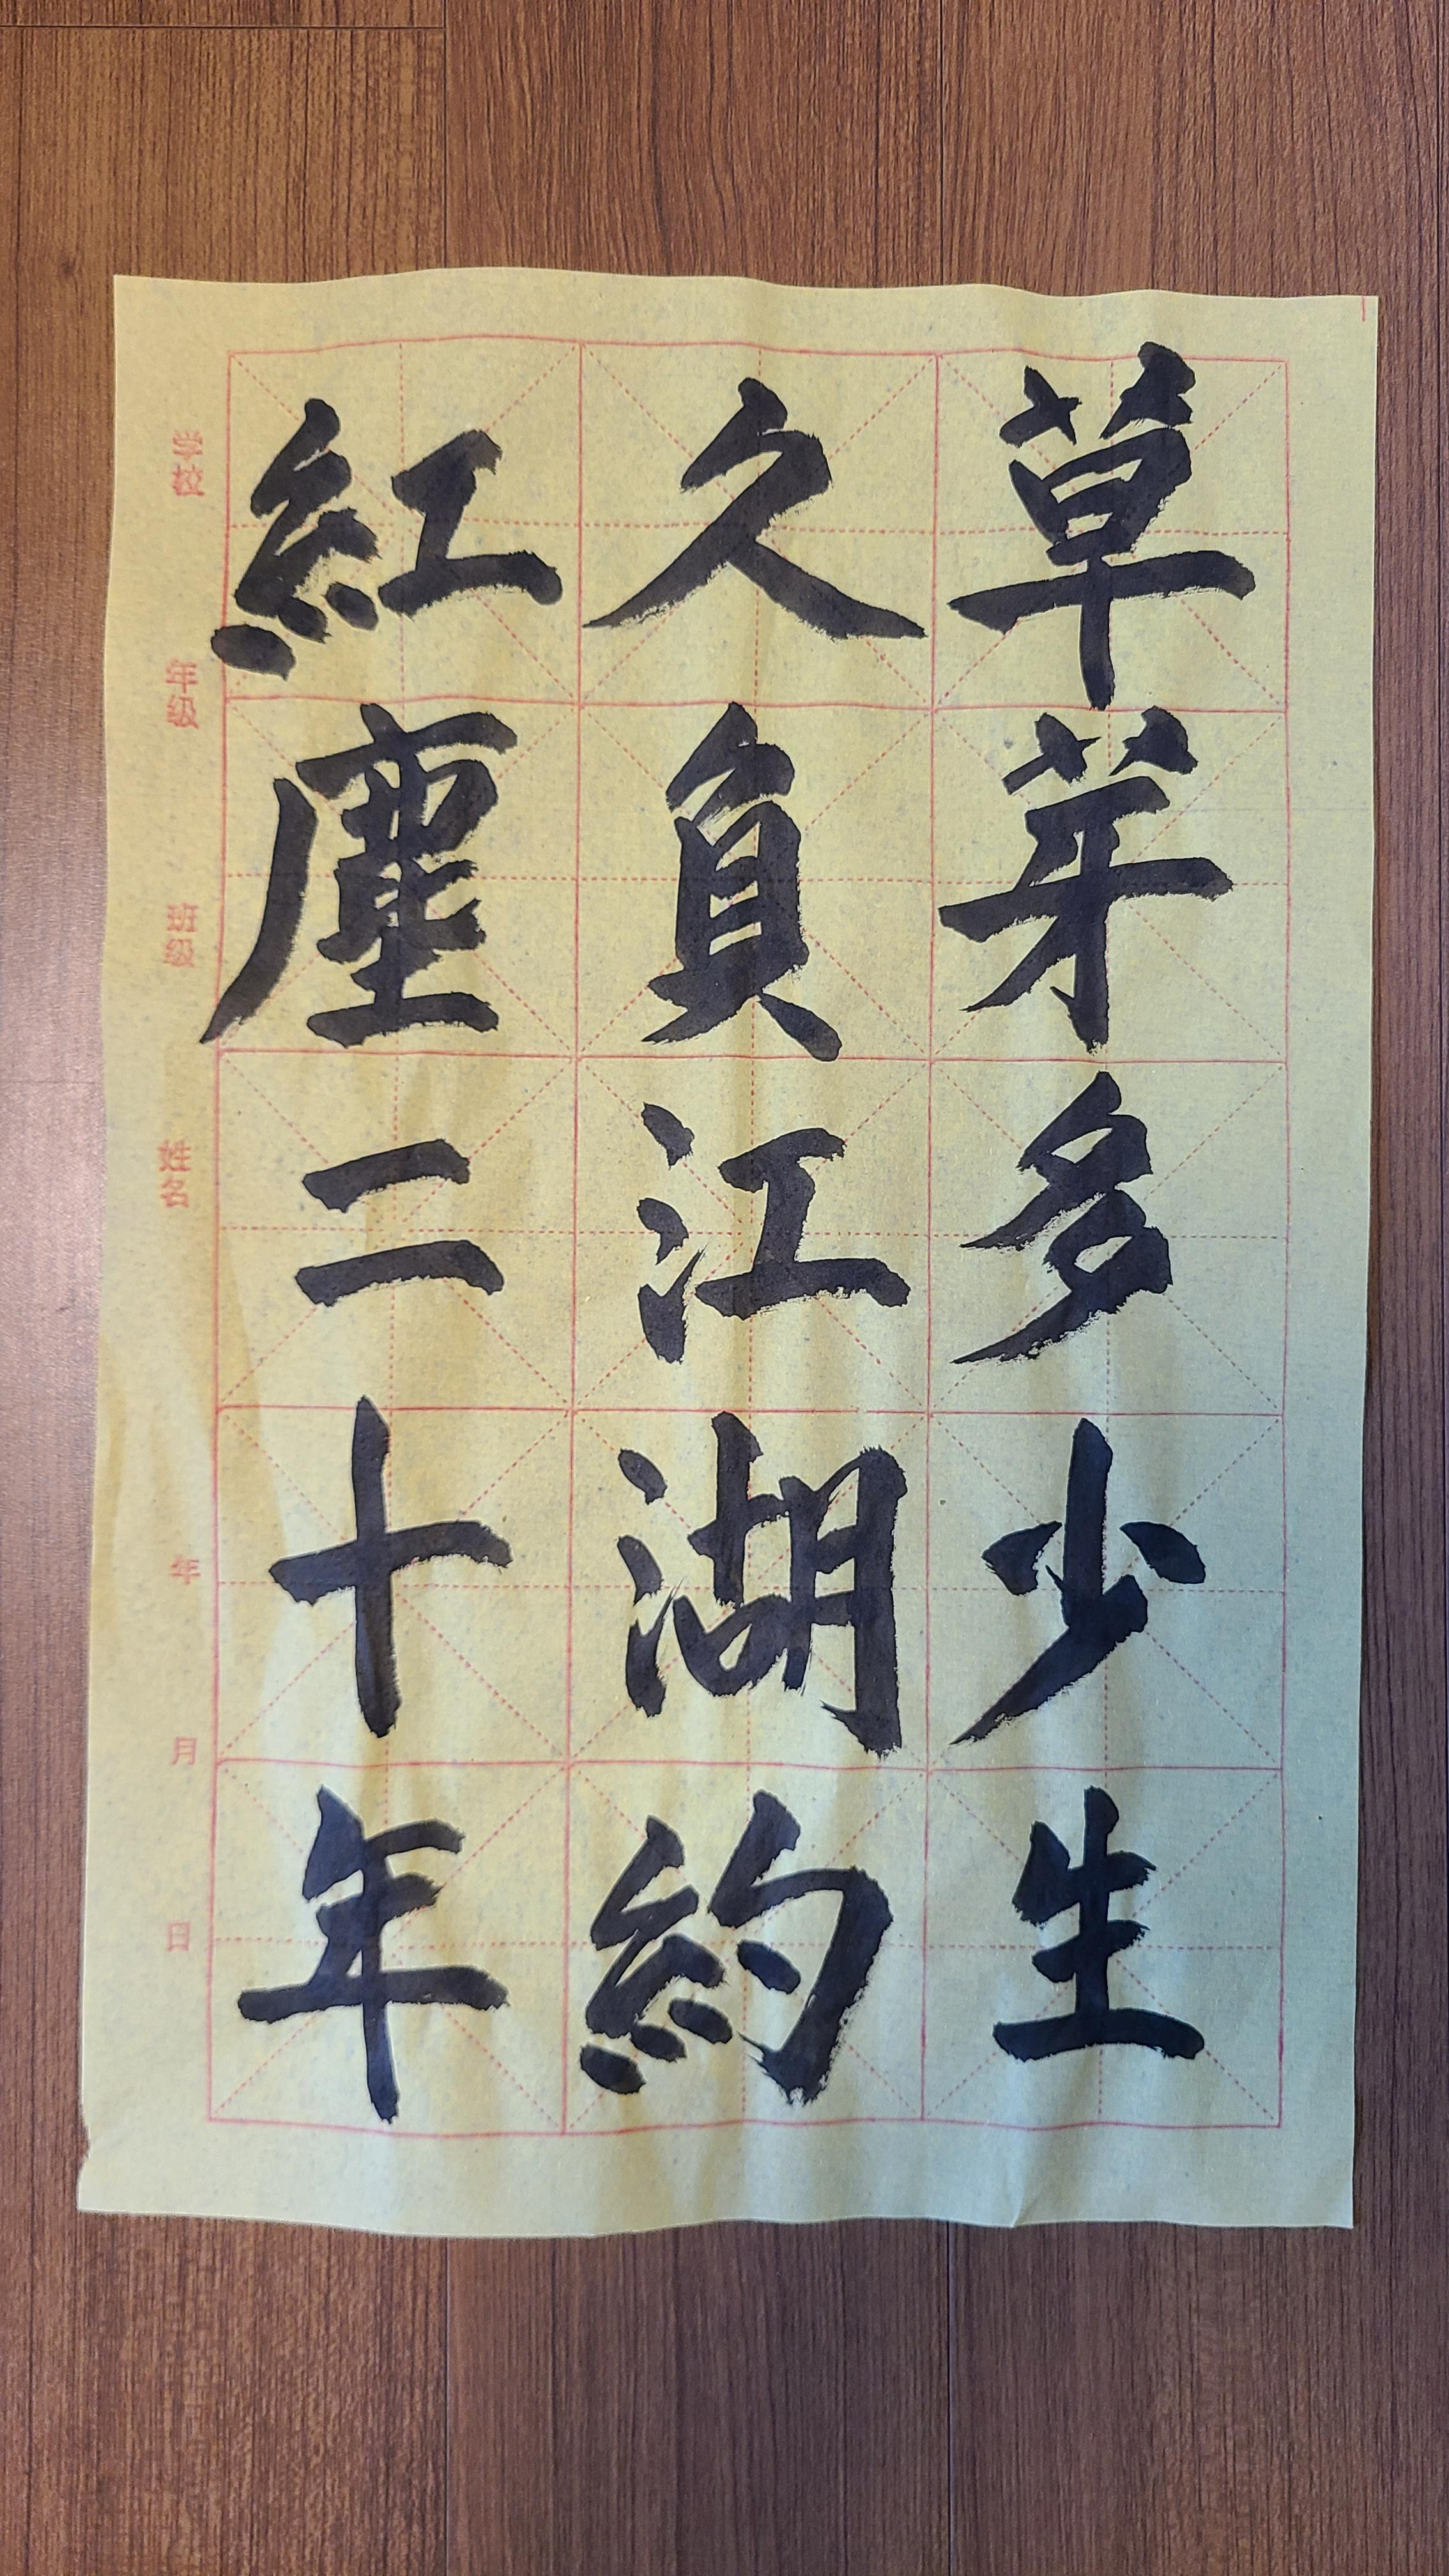 草芽多少生
久負江湖約
紅塵二十年
学校
年级
班级
姓名
年
月
日